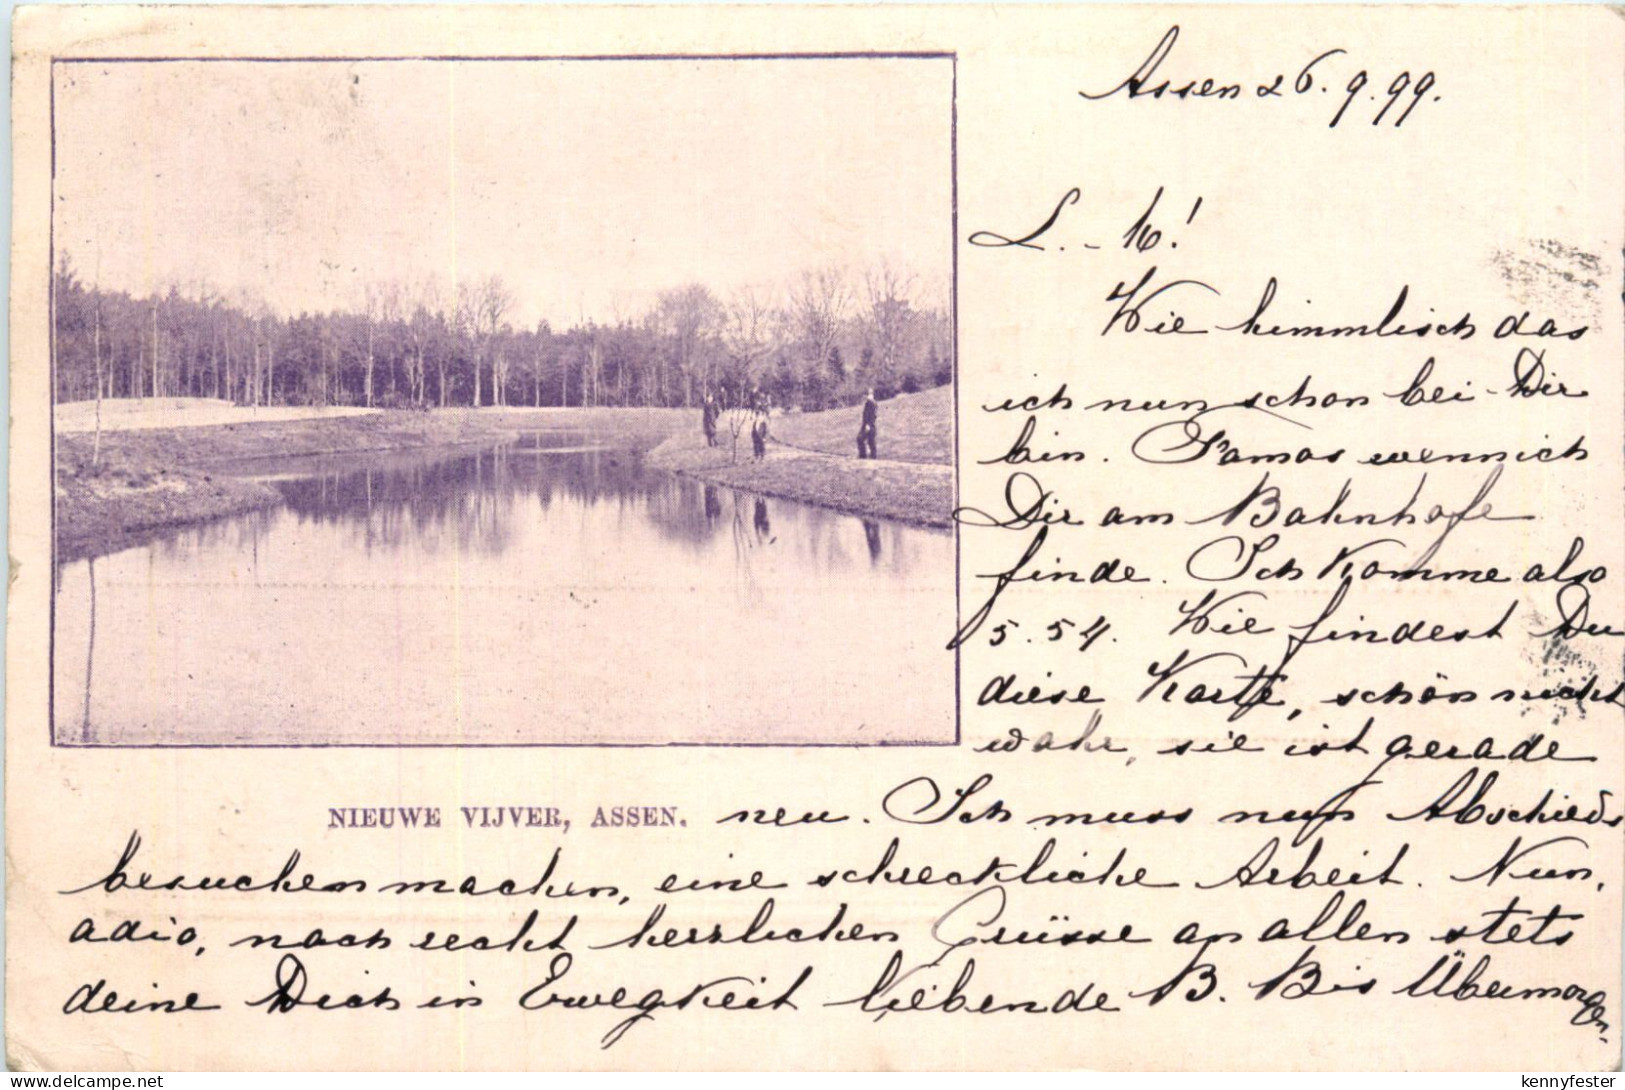 Assen 26.9.99.
L. - M!
Wie himmlisch das
ich nun schon bei Dir
bin. Famos wenn ich
Dir am Bahnhofe
finde. Ich komme also
5.54. Wie findest Du
diese Karte, schön nicht
wahr, sie ist gerade
NIEUWE VIJVER, ASSEN. neu. Ich muss nun Abschieds
besuchen machen, eine schreckliche Arbeit. Nun,
adio, noch recht herzlichen Grüsse an allen stets
deine Dich in Ewegkeit liebende B. Bis Übermorgen.
kennyfester